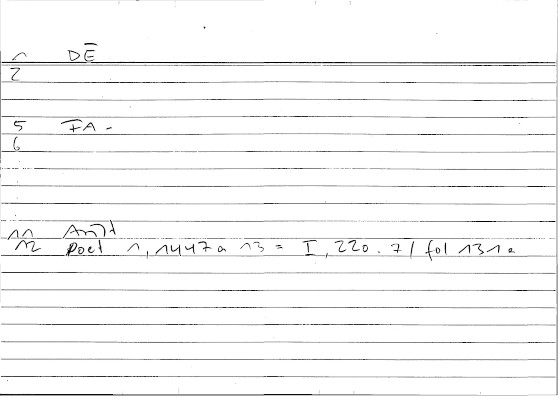 1 DĒ
2
5 FA -
6
11 Arist
12 Poet 1, 1447a 13 = I, 220.7 / fol 131a